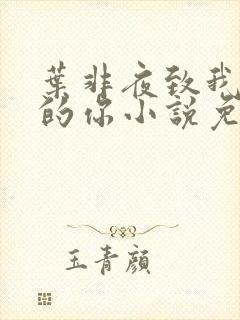 葉非夜致我
的你小說免
玉青顏